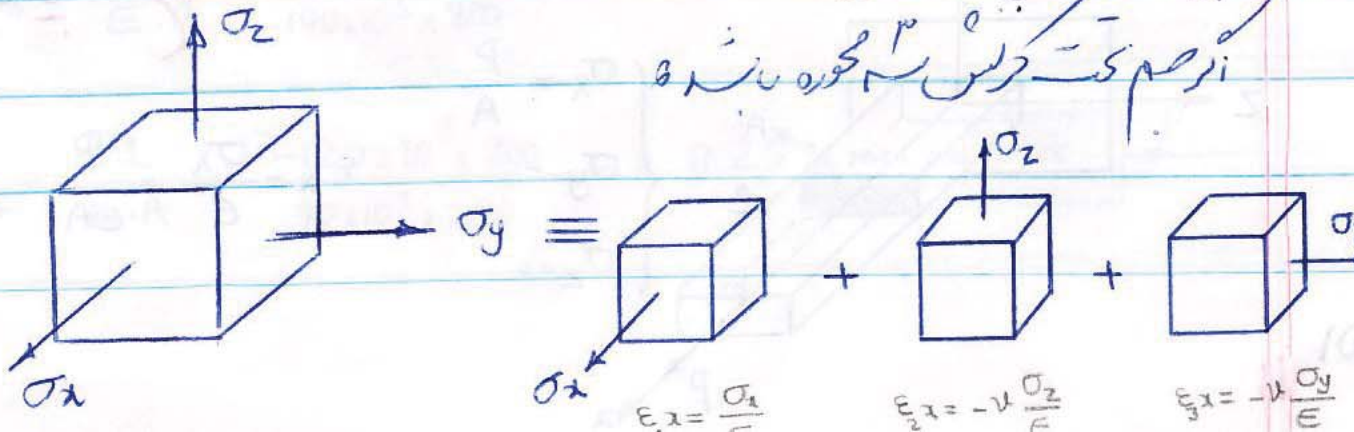 اگر جسم تحت کرنش سه محوره باشد
σz
σy ≡ + +
σx
σx
σz
σ
ε₁x = σx/E
ε₂x = -ν σz/E
ε₃x = -ν σy/E